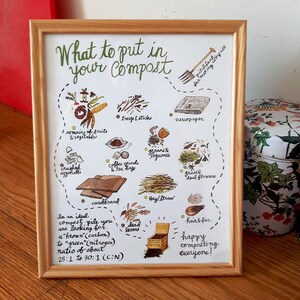 What to put in
your compost
remains of fruits
& vegetables
twigs & sticks
newspaper
crushed
eggshells
coffee grounds
& tea bags
grains &
legumes
grass &
dead flowers
cardboard
Hay/Straw
dead
leaves
hair & fur
In an ideal
compost pile you
are looking for
a "brown" (carbon)
to "green" (nitrogen)
ratio of about
25:1 to 30:1 (C:N)
happy
composting,
everyone!